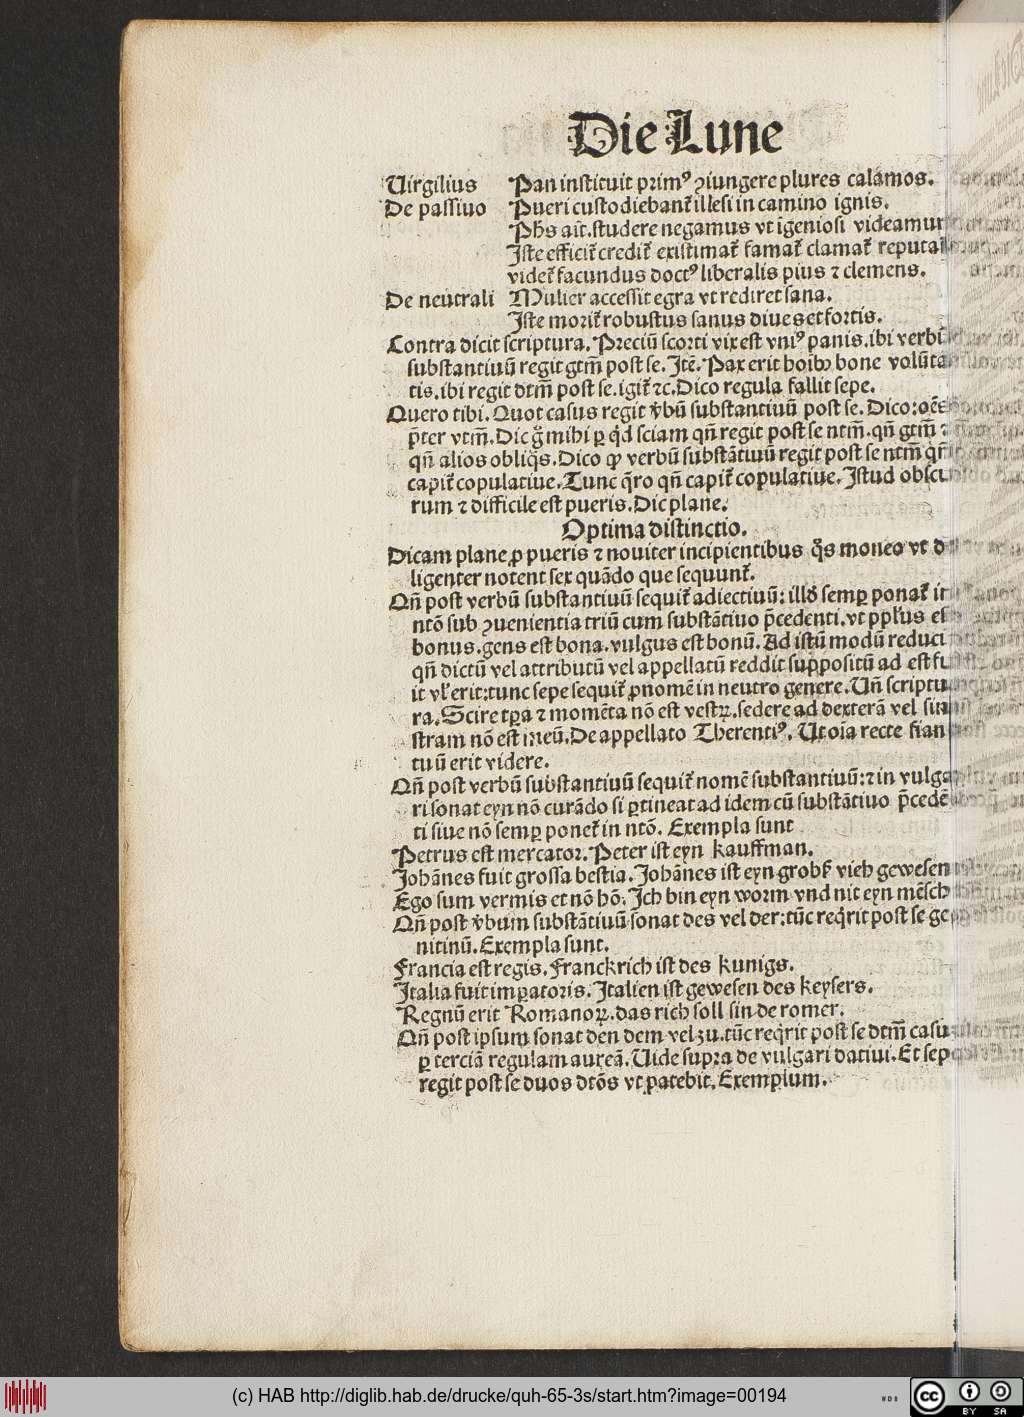 Die Lune
Uirgilius Pan instituit primꝰ ꝯiungere plures calamos.
De passiuo Pueri custodiebant᷑ illesi in camino ignis.
Ph̄s ait. studere negamus vt īgeniosi videamur
Iste efficit᷑ credit᷑ existimat᷑ famat᷑ clamat᷑ reputat᷑
videt᷑ facundus doctꝰ liberalis pius ⁊ clemens.
De neutrali Mulier accessit egra vt rediret sana.
Iste morit᷑ robustus sanus diues et fortis.
Contra dicit scriptura. Preciū scorti vix est vniꝰ panis. ibi verbū
substantiuū regit gtm̄ post se. Itē. Pax erit hoībꝫ bone volūta
tis. ibi regit dtm̄ post se. igit᷑ ⁊c. Dico regula fallit sepe.
Quero tibi. Quot casus regit v̄bū substantiuū post se. Dico: oēs
p̄ter vtm̄. Dic g̊ mihi ꝑ qd̄ sciam qn̄ regit post se ntm̄. qn̄ gtm̄ ⁊
qn̄ alios obliq̄s. Dico ꝙ verbū substātiuū regit post se ntm̄ qn̄
capit᷑ copulatiue. Tunc q̄ro qn̄ capit᷑ copulatiue. Istud obscu
rum ⁊ difficile est pueris. Dic plane.
Optima distinctio.
Dicam plane ꝓ pueris ⁊ nouiter incipientibus q̊s moneo vt di
ligenter notent sex quādo que sequunt᷑.
Qn̄ post verbū substantiuū sequit᷑ adiectiuū: illd̄ semꝑ ponat᷑ in
ntō sub ꝯuenientia triū cum substātiuo p̄cedenti. vt ppl̄us est
bonus. gens est bona. vulgus est bonū. Ad istū modū reduci
qn̄ dictū vel attributū vel appellatū reddit suppositū ad est fu
it vl̄ erit: tunc sepe sequit᷑ ꝓnomē in neutro genere. Un̄ scriptu
ra. Scire tꝑa ⁊ momēta nō est vestrꝝ. sedere ad dexterā vel sini
stram nō est meū. De appellato Therentiꝰ. Ut oīa recte fiant
tuū erit videre.
Qn̄ post verbū substantiuū sequit᷑ nomē substantiuū: ⁊ in vulga
ri sonat eyn nō curādo si ꝑtineat ad idem cū substātiuo p̄cedē
ti siue nō semꝑ ponet᷑ in ntō. Exempla sunt
Petrus est mercator. Peter ist eyn kauffman.
Johānes fuit grossa bestia. Johānes ist eyn grobß vieh gewesen
Ego sum vermis et nō hō. Ich bin eyn worm vnd nit eyn mēsch
Qn̄ post v̄bum substātiuū sonat des vel der: tūc reqrit post se ge
nitinū. Exempla sunt.
Francia est regis. Franckrich ist des kunigs.
Italia fuit imꝑatoris. Italien ist gewesen des keysers.
Regnū erit Romanoꝝ. das rich soll sin de romer.
Qn̄ post ipsum sonat den dem vel zu. tūc reqrit post se dtm̄ casū
ꝑ terciā regulam aureā. Uide supra de vulgari datiui. Et sepe
regit post se duos dtōs vt patebit. Exemplum.
(c) HAB http://diglib.hab.de/drucke/quh-65-3s/start.htm?image=00194
WDB
cc BY SA